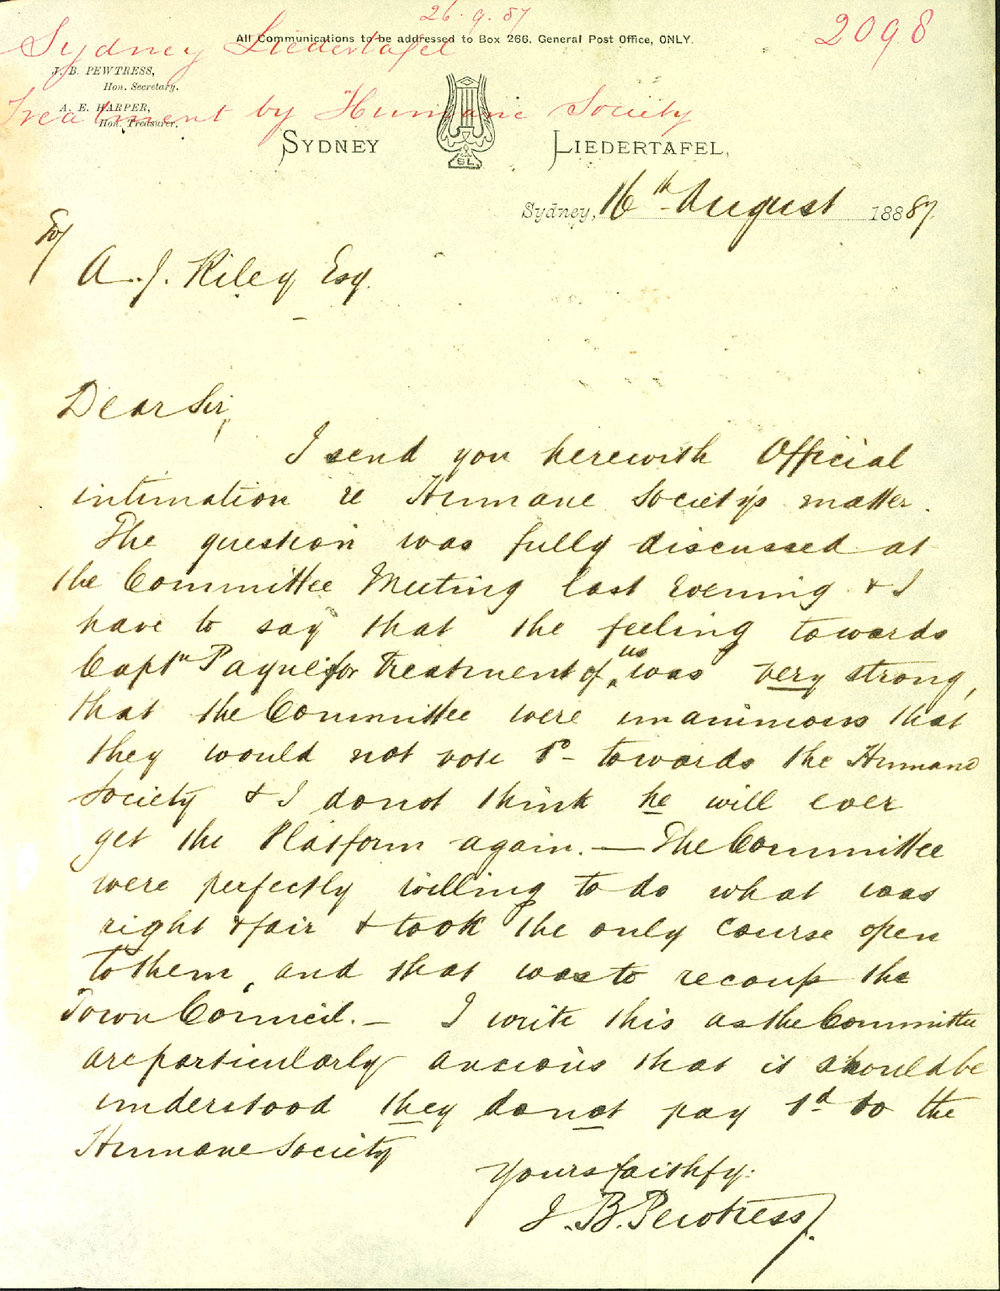 26.9.87
All Communications to be addressed to Box 266. General Post Office, ONLY.
2098
Sydney Liedertafel
J. B. PEWTRESS,
Hon. Secretary.
A. E. HARPER,
Hon. Treasurer.
Treatment by Humane Society
SYDNEY LIEDERTAFEL,
SL
Sydney, 16th August 1887
A. J. Riley Esq.
Dear Sir,
I send you herewith Official
intimation re Humane Society's matter.
The question was fully discussed at
the Committee Meeting last evening & I
have to say that the feeling towards
Captn Payne for Treatment of us was very strong,
that the Committee were unanimous that
they would not vote 1d towards the Humane
Society & I do not think he will ever
get the Platform again. — The Committee
were perfectly willing to do what was
right & fair & took the only course open
to them, and that was to recoup the
Town Council. — I write this as the Committee
are particularly anxious that it should be
understood they do not pay 1d to the
Humane Society
Yours faithfy:
J. B. Pewtress